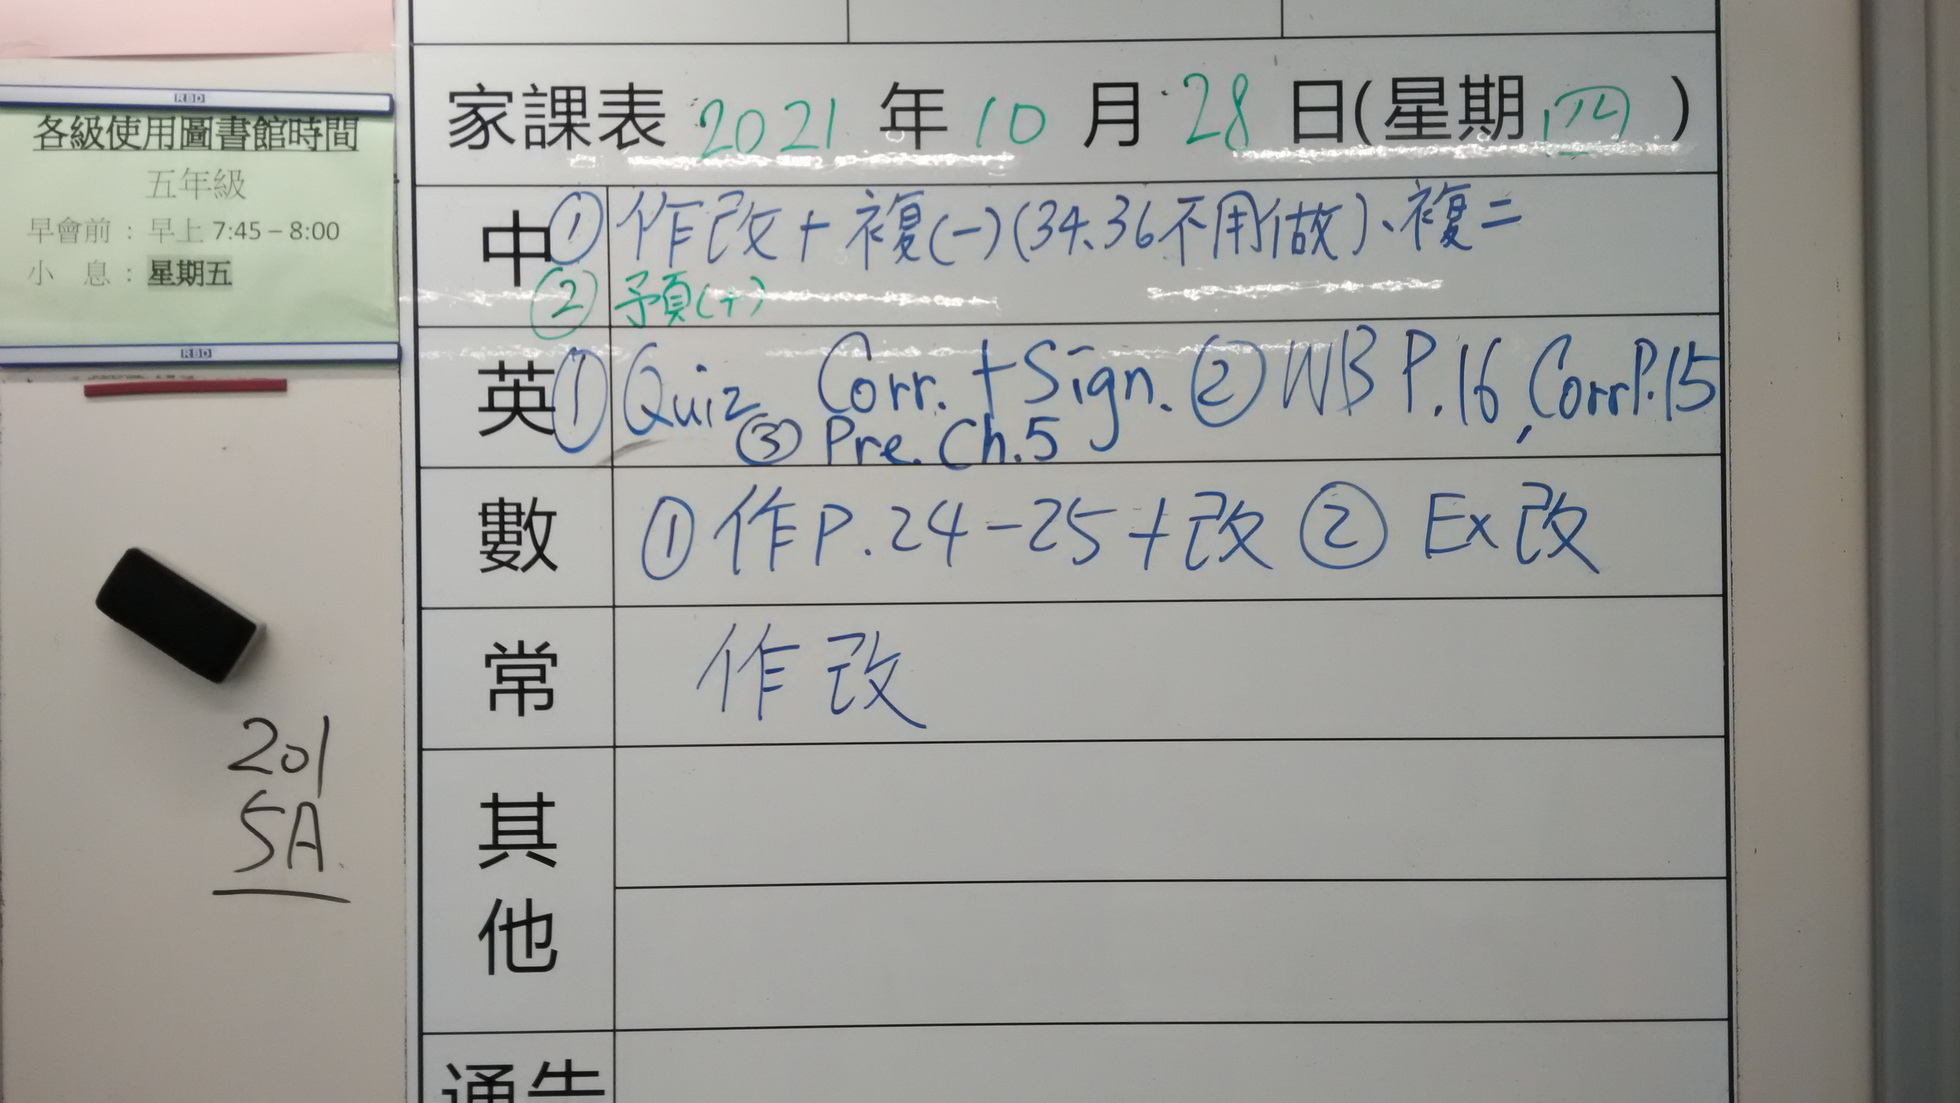 RBD
各級使用圖書館時間
五年級
早會前：早上 7:45 – 8:00
小 息：星期五
RBD
201
5A
家課表 2021 年 10 月 28 日(星期四)
中 ① 作改+複(一)(34、36不用做)、複二
② 予頁(十)
英 ① Quiz Corr. + Sign. ② WB P.16, Corr P.15
③ Pre. Ch.5
數 ① 作P.24-25+改 ② Ex改
常 作改
其他
通告